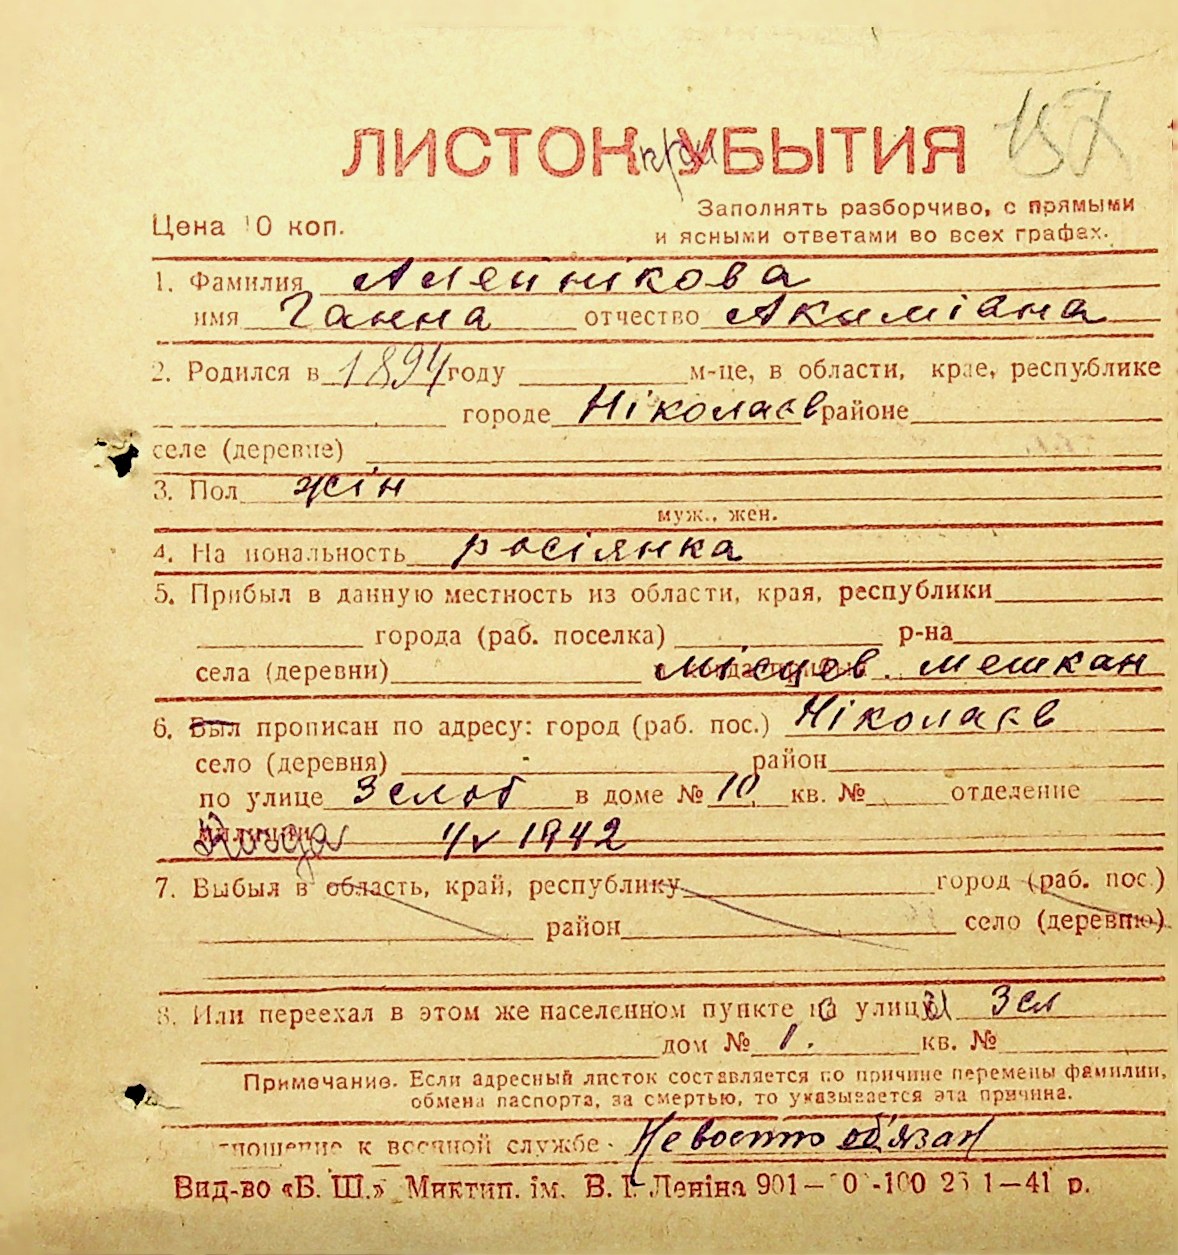 157
ЛИСТОК УБЫТИЯ
Цена 10 коп.
Заполнять разборчиво, с прямыми
и ясными ответами во всех графах.
1. Фамилия Алейнікова
имя Ганна отчество Акиміана
2. Родился в 1894 году м-це, в области, крае, республике
городе Ніколаєв районе
селе (деревне)
3. Пол жін
муж., жен.
4. Национальность росіянка
5. Прибыл в данную местность из области, края, республики
города (раб. поселка) р-на
села (деревни) місцев. мешкан
6. Был прописан по адресу: город (раб. пос.) Ніколаєв
село (деревня) район
по улице 3 слоб в доме № 10 кв. № отделение
Когда 1942
7. Выбыл в область, край, республику город (раб. пос.)
район село (деревню)
8. Или переехал в этом же населенном пункте улицы 3 сл
дом № 1. кв. №
Примечание. Если адресный листок составляется по причине перемены фамилии,
обмена паспорта, за смертью, то указывается эта причина.
отношение к военной службе
Вид-во «Б. Ш.» Миктип. ім. В. І. Леніна 901— 1—41 р.